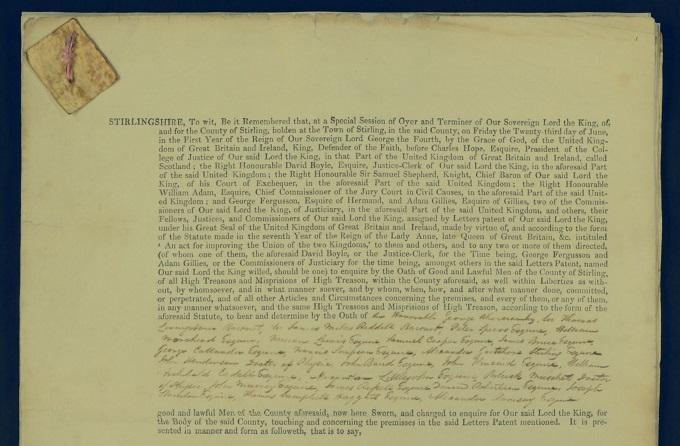 STIRLINGSHIRE, To wit, Be it Remembered that, at a Special Session of Oyer and Terminer of Our Sovereign Lord the King, of,
and for the County of Stirling, holden at the Town of Stirling, in the said County, on Friday the Twenty-third day of June,
in the First Year of the Reign of Our Sovereign Lord George the Fourth, by the Grace of God, of the United King-
dom of Great Britain and Ireland, King, Defender of the Faith, before Charles Hope, Esquire, President of the Col-
lege of Justice of Our said Lord the King, in that Part of the United Kingdom of Great Britain and Ireland, called
Scotland; the Right Honourable David Boyle, Esquire, Justice-Clerk of Our said Lord the King, in the aforesaid Part
of the said United Kingdom; the Right Honourable Sir Samuel Shepherd, Knight, Chief Baron of Our said Lord the
King, of his Court of Exchequer, in the aforesaid Part of the said United Kingdom; the Right Honourable
William Adam, Esquire, Chief Commissioner of the Jury Court in Civil Causes, in the aforesaid Part of the said Unit-
ed Kingdom; and George Fergusson, Esquire of Hermand, and Adam Gillies, Esquire of Gillies, two of the Commis-
sioners of Our said Lord the King, of Justiciary, in the aforesaid Part of the said United Kingdom, and others, their
Fellows, Justices, and Commissioners of Our said Lord the King, assigned by Letters patent of Our said Lord the King,
under his Great Seal of the United Kingdom of Great Britain and Ireland, made by virtue of, and according to the form
of the Statute made in the seventh Year of the Reign of the Lady Anne, late Queen of Great Britain, &c. intituled
‘ An act for improving the Union of the two Kingdoms,’ to them and others, and to any two or more of them directed,
(of whom one of them, the aforesaid David Boyle, or the Justice-Clerk, for the Time being, George Fergusson and
Adam Gillies, or the Commissioners of Justiciary for the time being, amongst others in the said Letters Patent, named
Our said Lord the King willed, should be one) to enquire by the Oath of Good and Lawful Men of the County of Stirling,
of all High Treasons and Misprisions of High Treason, within the County aforesaid, as well within Liberties as with-
out, by whomsoever, and in what manner soever, and by whom, when, how, and after what manner done, committed,
or perpetrated, and of all other Articles and Circumstances concerning the premises, and every of them, or any of them,
in any manner whatsoever, and the same High Treasons and Misprisions of High Treason, according to the form of the
aforesaid Statute, to hear and determine by the Oath of the Honourable George Abercromby, Sir Thomas
Livingstone Baronet, Sir James Miles Riddell Baronet, Peter Speirs Esquire, William
Morehead Esquire, William Esquire, Samuel Cooper Esquire, James Bruce Esquire,
George Callander Esquire, Francis Simpson Esquire, Alexander Stirling Esquire
Henderson Doctor of Physic, John Baird Esquire, John Kincaid Esquire, William
Archibald Esquire, Esquire, Muschet Doctor
of Physic, John Murray Esquire, James Esquire, David Robertson Esquire, Joseph
Esquire, Thomas Campbell Haggart Esquire, Alexander Ramsay Esquire
good and lawful Men of the County aforesaid, now here Sworn, and charged to enquire for Our said Lord the King, for
the Body of the said County, touching and concerning the premisses in the said Letters Patent mentioned. It is pre-
sented in manner and form as followeth, that is to say,